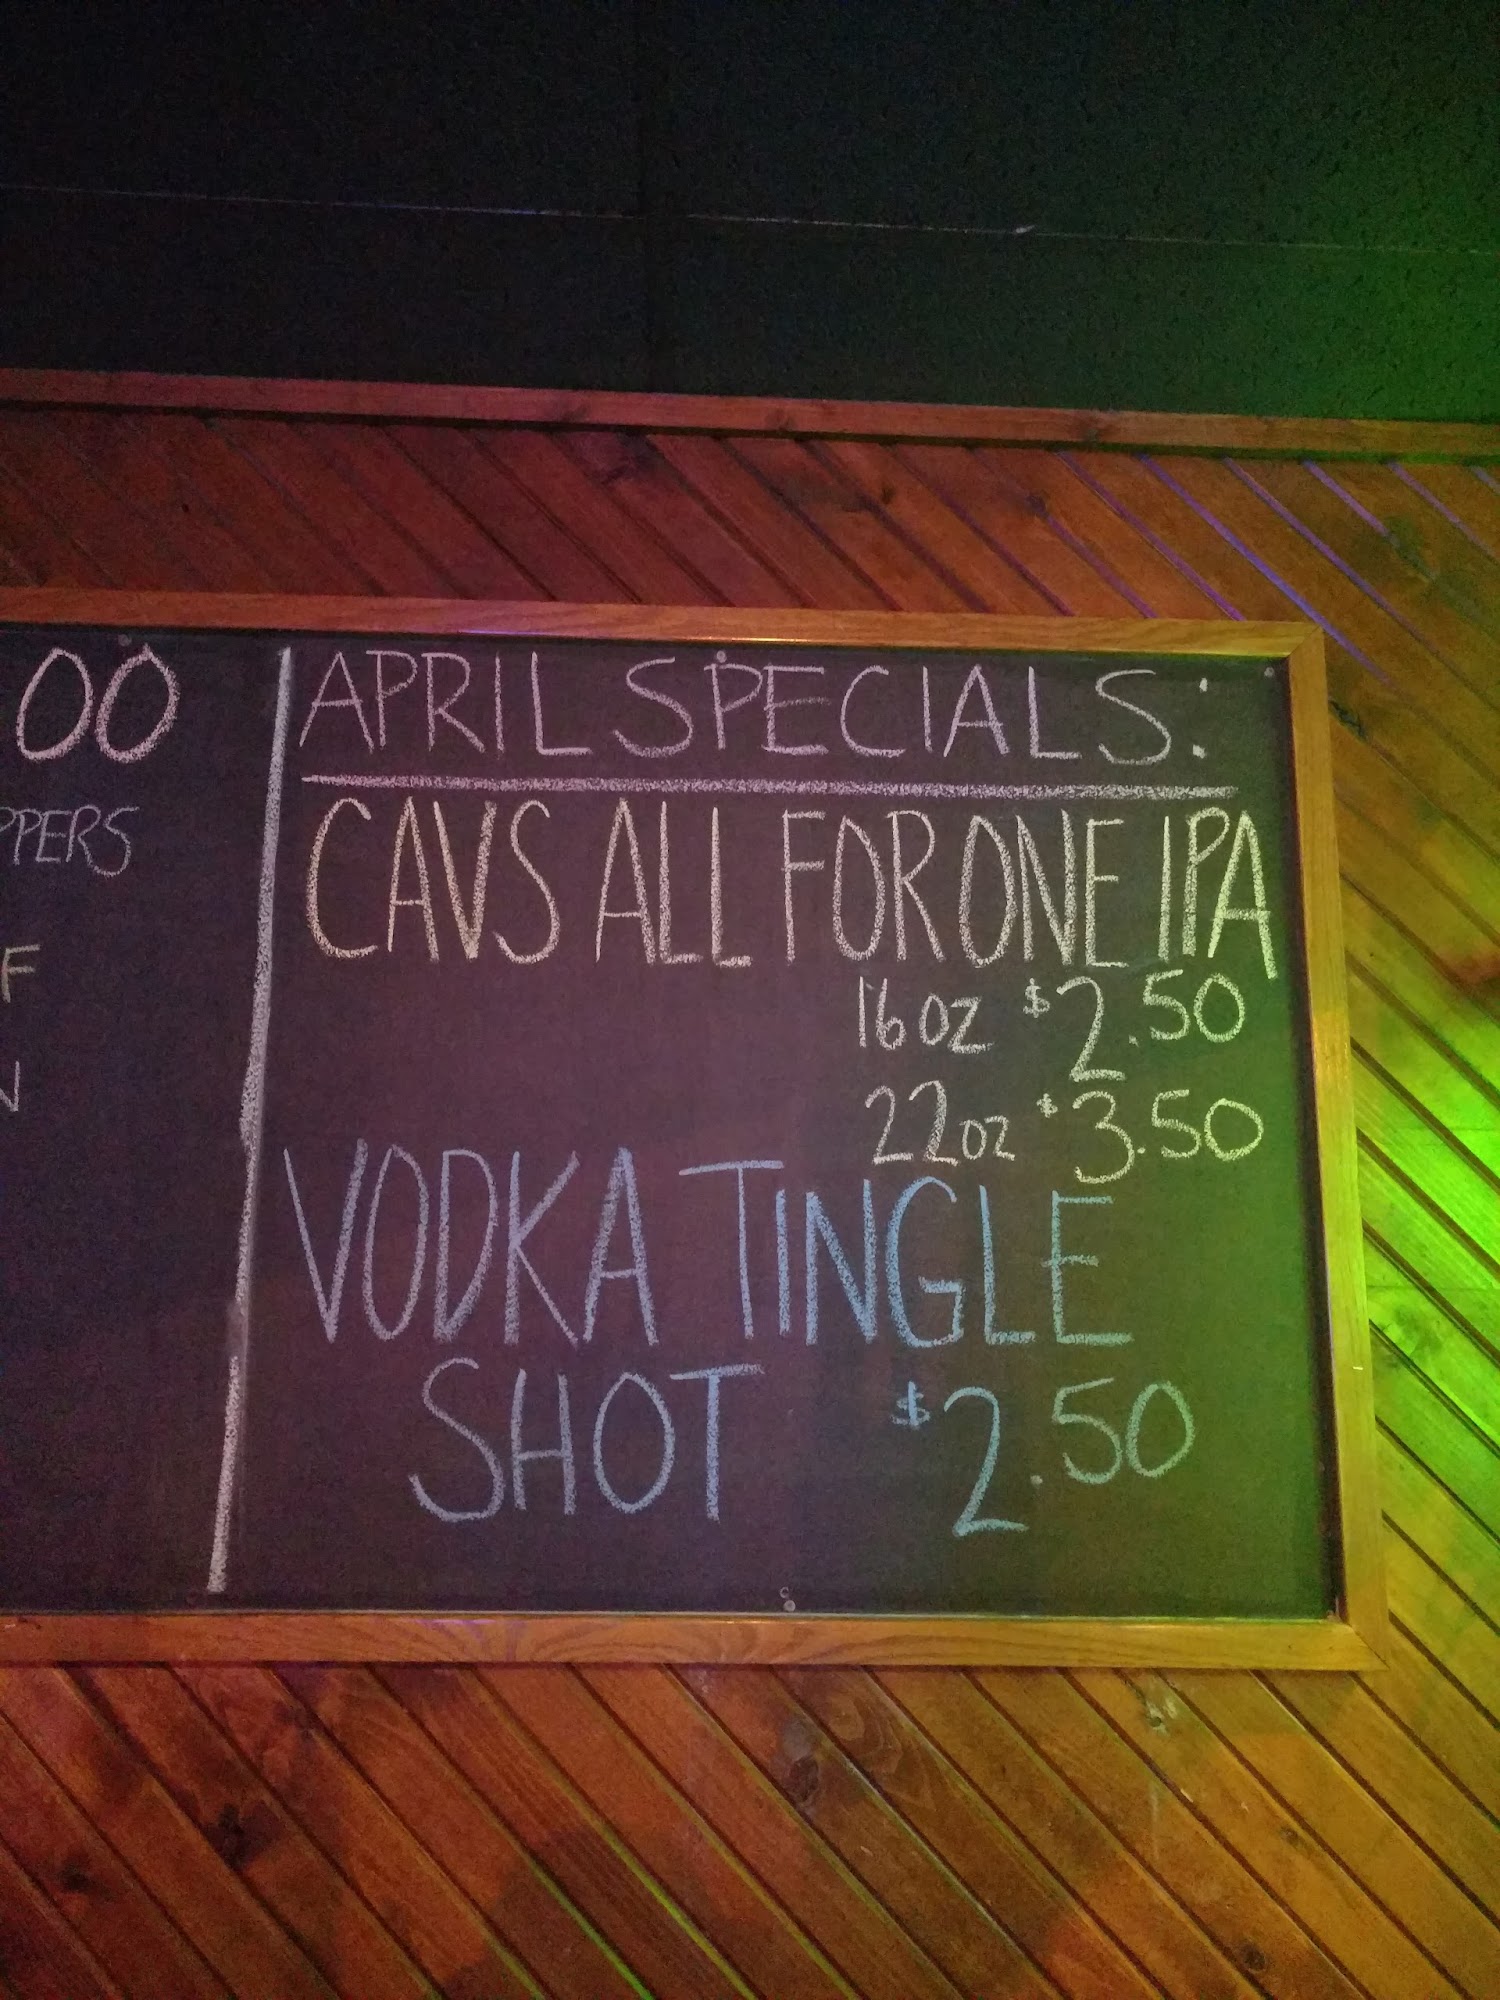 00
PPERS
F
N
APRIL SPECIALS:
CAVS ALL FOR ONE IPA
16 OZ $2.50
22 OZ $3.50
VODKA TINGLE
SHOT $2.50